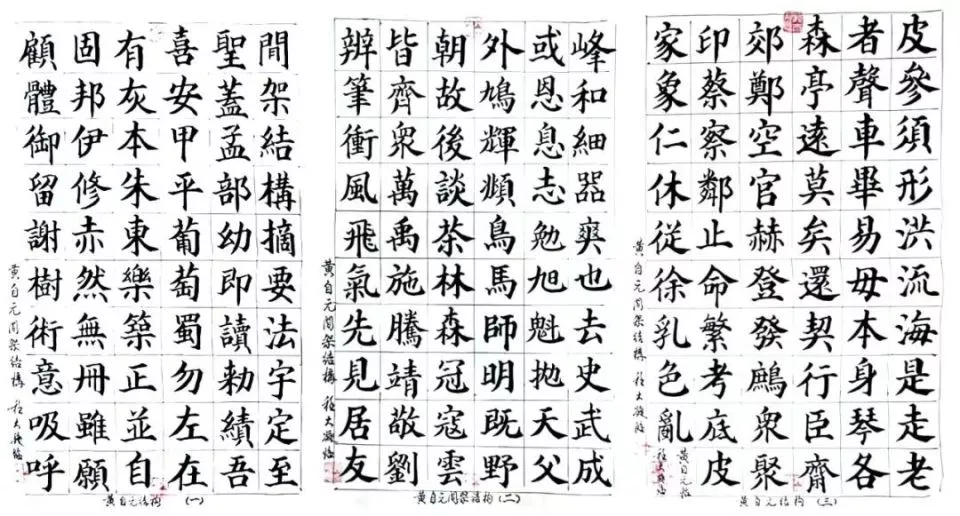 間架結構摘要法宇定至
聖蓋孟部幼即讀勅績吾
喜安甲平葡萄蜀勿左在
有灰本朱東樂築正並自
固邦伊修赤然無冊雖願
顧體御留謝樹術意吸呼
黄自元間架結構
黄自元结构（一）
峰和細器爽也去史武成
或恩息志勉旭魁拋天父
外鳩輝頻鳥馬師明既野
朝故後談茶林森冠寇雲
皆齊衆萬禹施騰靖敬劉
辨筆衝風飛氣先見居友
黄自元間架結構
黄自元间架结构（二）
皮參須形洪流海是走老
者聲車畢易毋本身琴各
森亭遠莫矣還契行臣齊
郊鄭空官赫登發鷓衆聚
印蔡察鄰止命繁考底皮
家象仁休從徐乳色亂
黄自元間架結構
黄自元结构（三）